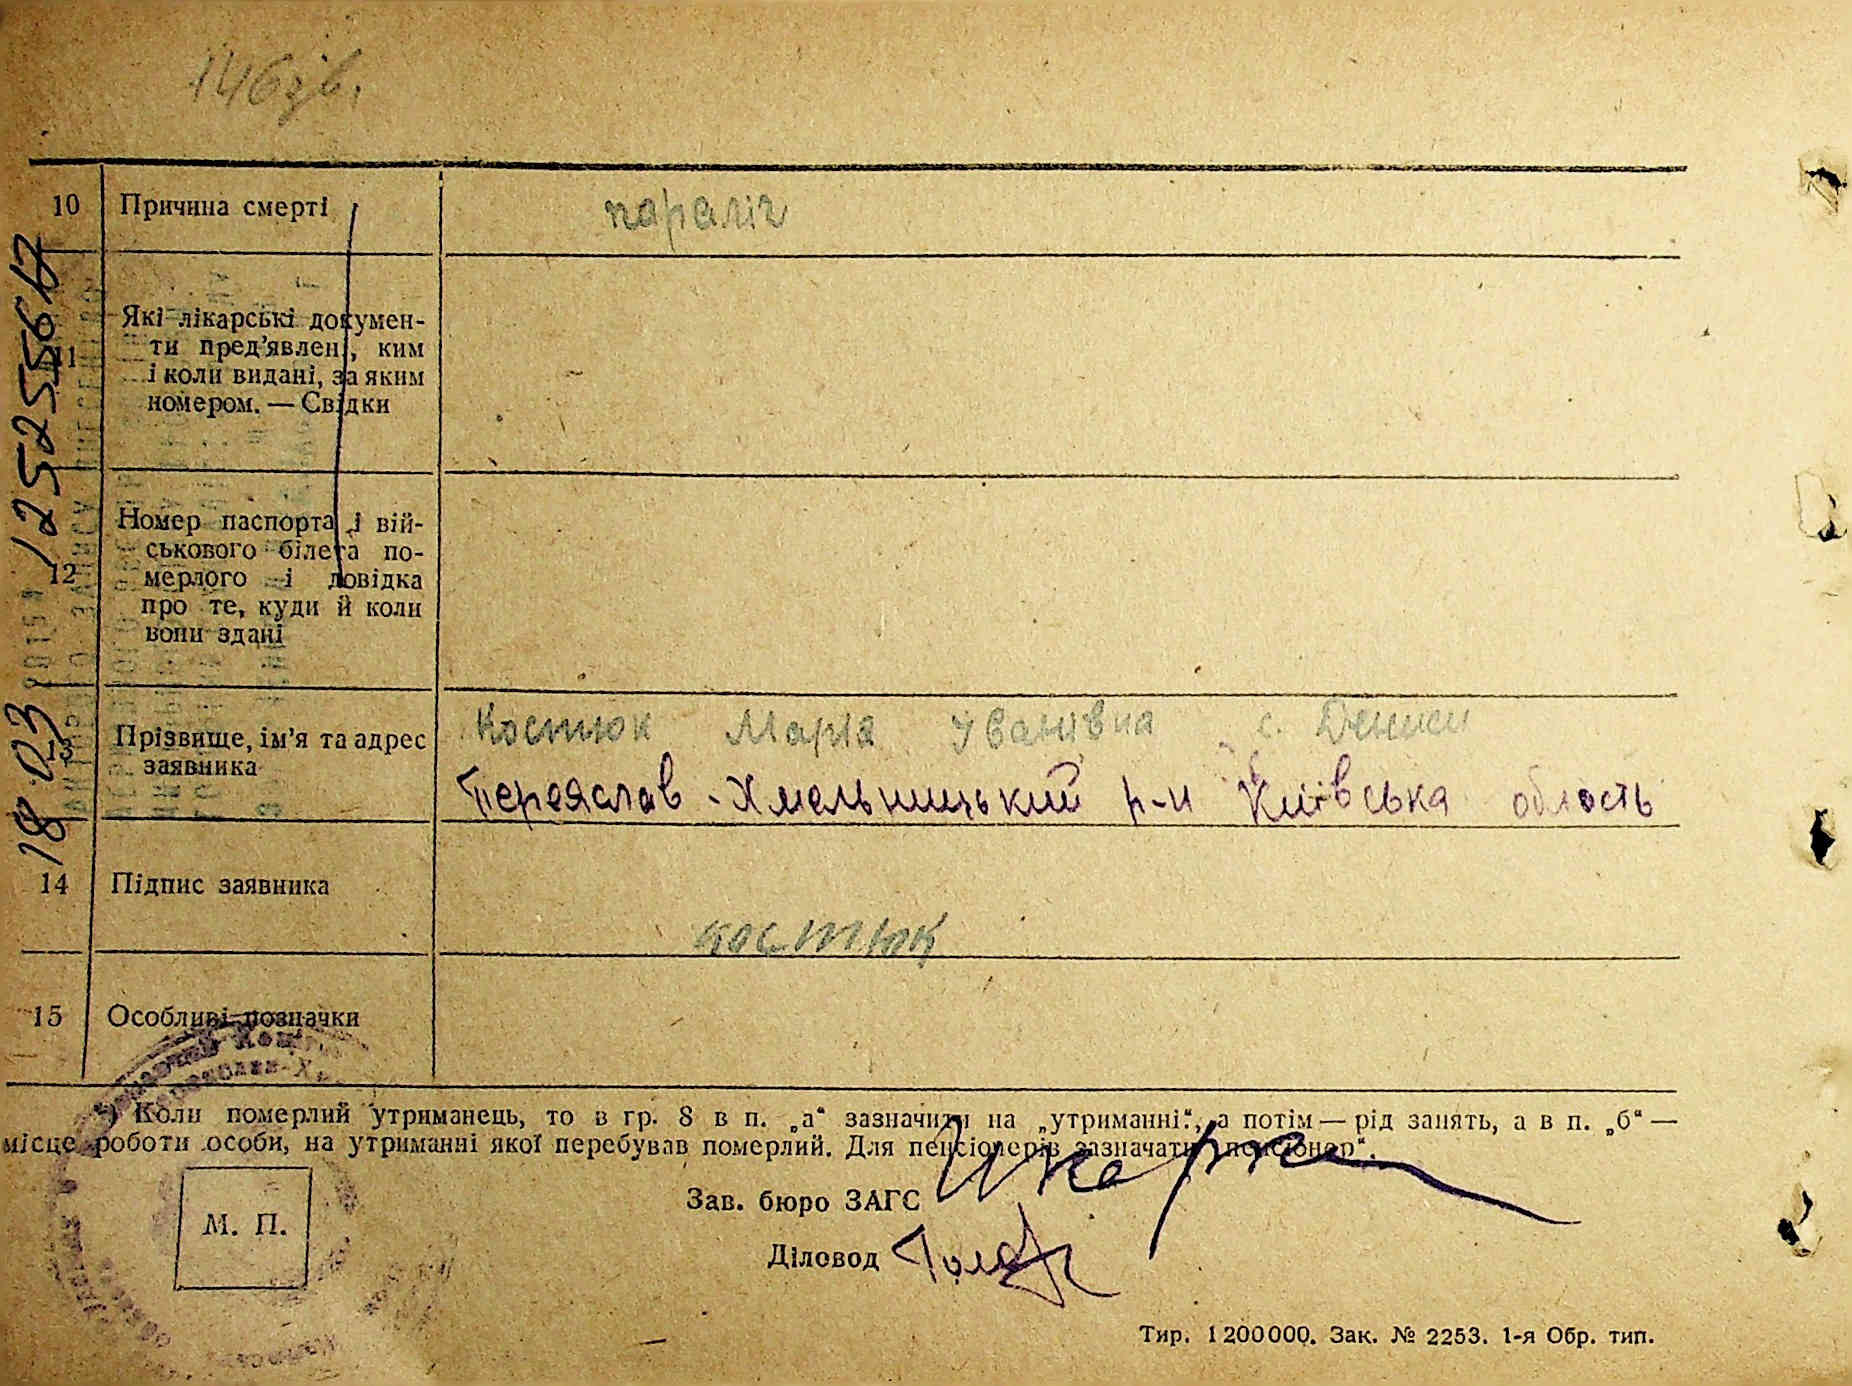 146 зв.
10 Причина смерті параліч
11 Які лікарські докумен-
ти пред’явлені, ким
і коли видані, за яким
номером. — Свідки
12 Номер паспорта і вій-
ськового білета по-
мерлого і довідка
про те, куди й коли
вони здані
13 Прізвище, ім’я та адрес
заявника
Костюк Марія Іванівна с. Дениси
Переяслав-Хмельницький р-н Київська область
14 Підпис заявника
Костюк
15 Особливі позначки
*) Коли померлий утриманець, то в гр. 8 в п. „а“ зазначити на „утриманні“, а потім — рід занять, а в п. „б“ —
місце роботи особи, на утриманні якої перебував померлий. Для пенсіонерів зазначати „пенсіонер“.
Зав. бюро ЗАГС
М. П.
Діловод
Тир. 1 200 000. Зак. № 2253. 1-я Обр. тип.
18.03